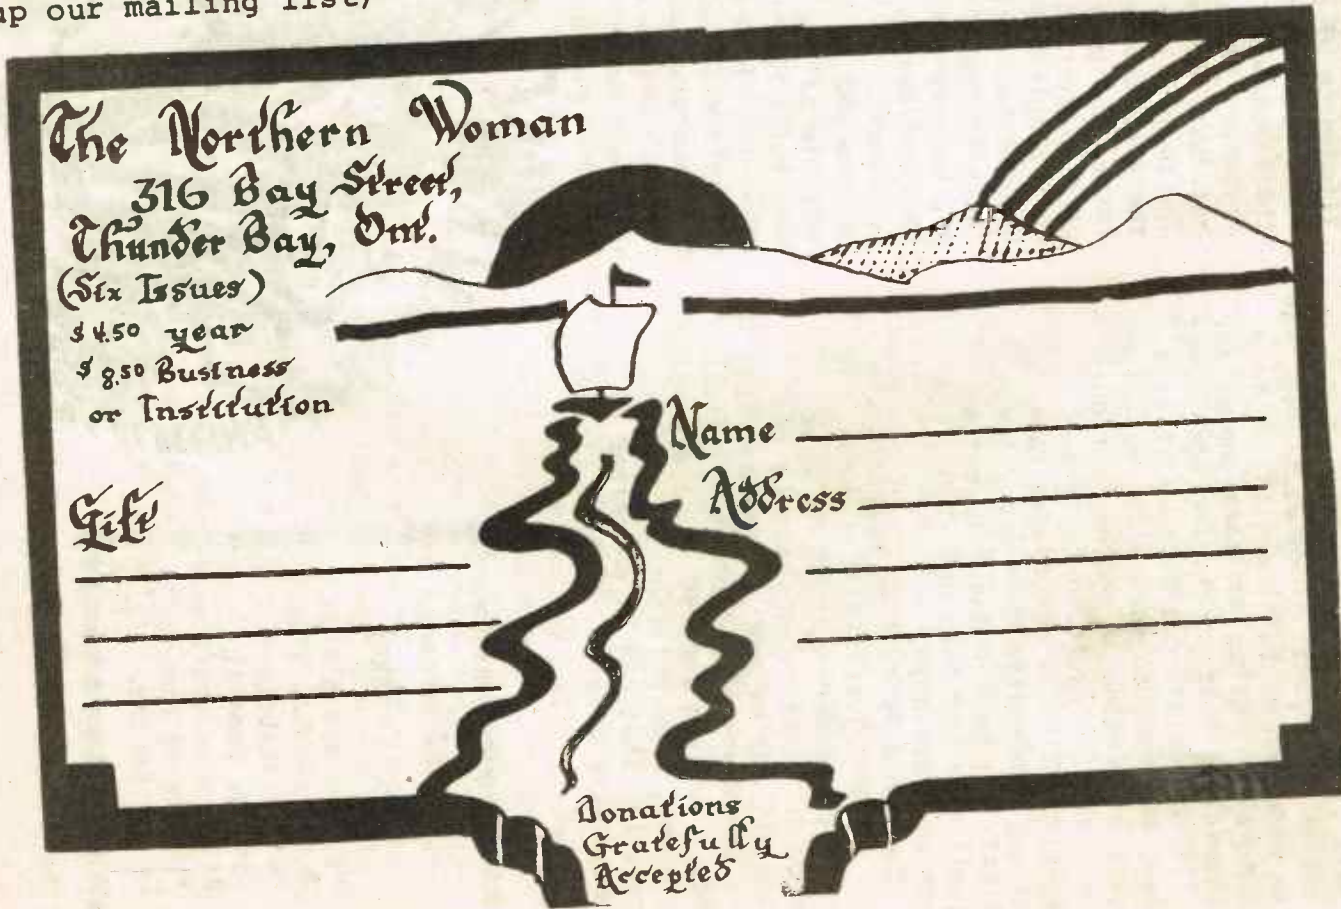 up our mailing list)
The Northern Woman
316 Bay Street,
Thunder Bay, Ont.
(Six Issues)
$4.50 year
$8.50 Business
or Institution
Name
Address
Gift
Donations
Gratefully
Accepted